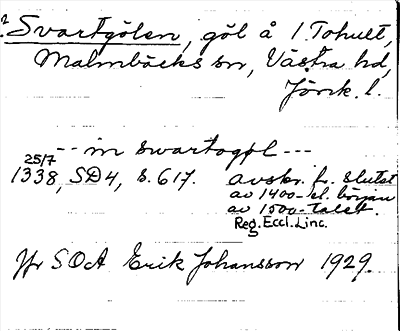 ? Svartgölen, göl å 1. Tohult,
Malmbäcks sn, Västra hd,
Jönk. l.
-- in swartogøl ---
25/7
1338, SD4, s. 617. avskr. fr. slutet
av 1400- el. början
av 1500-talet.
Reg. Eccl. Linc.
Jfr SOA Erik Johansson 1929.